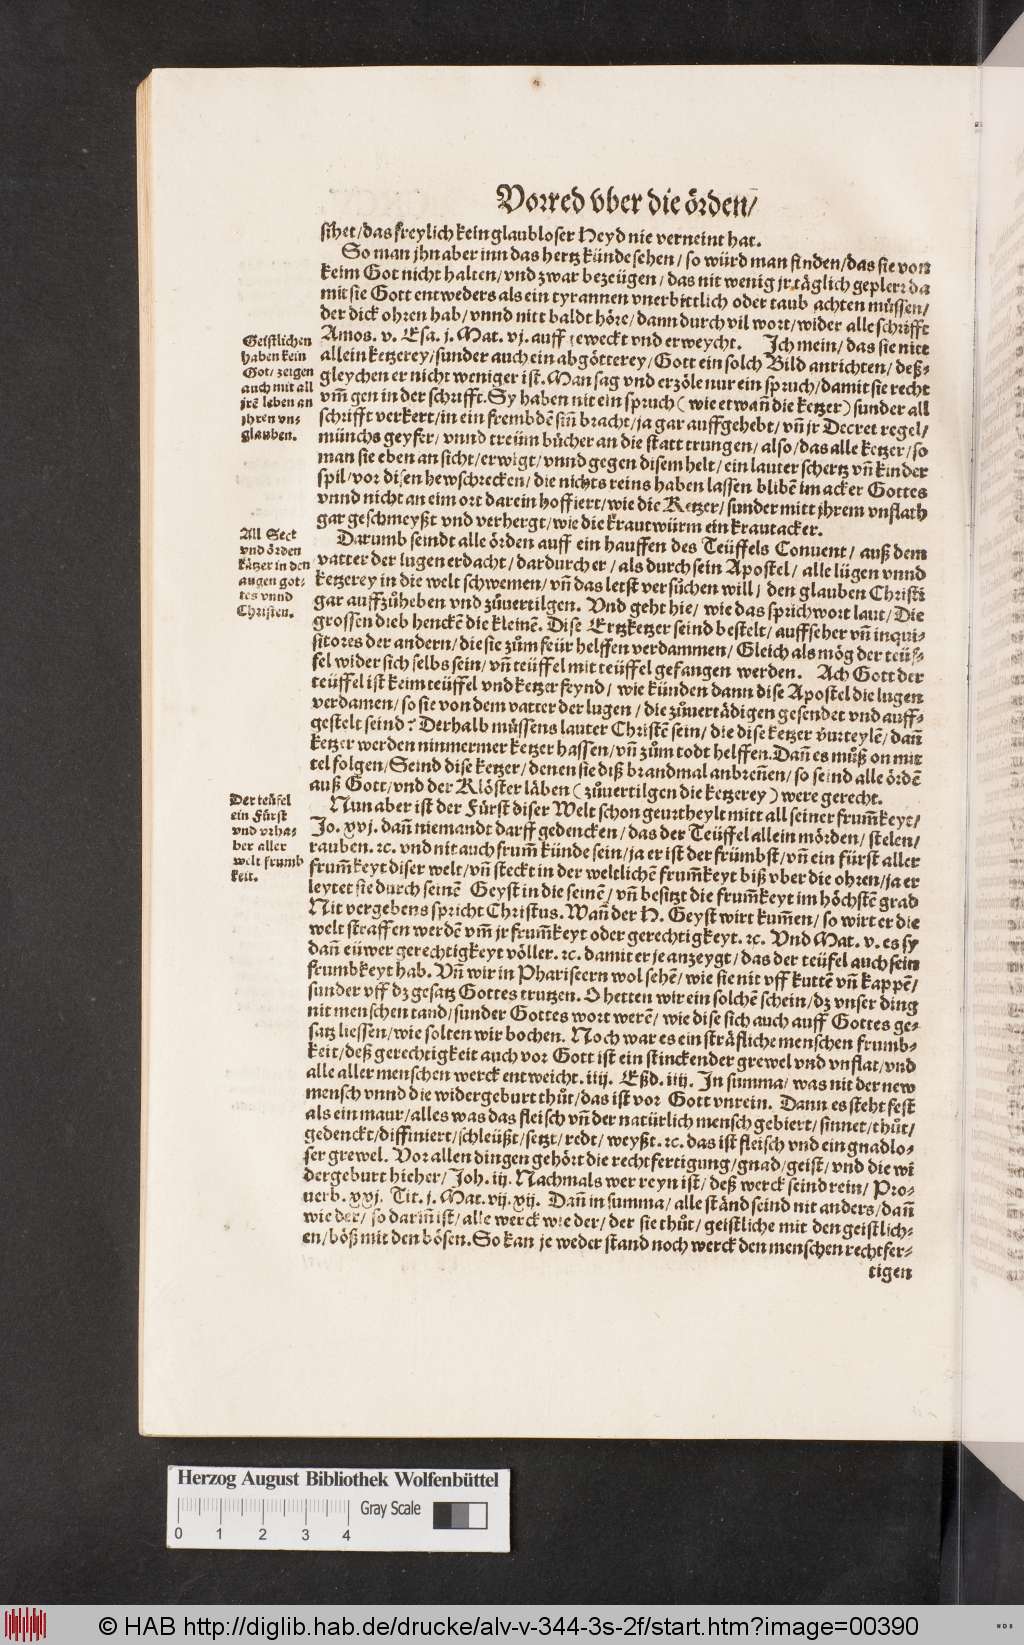 Vorred vber die örden/
sihet/das freylich kein glaubloser Heyd nie verneint hat.
So man jhn aber inn das hertz künde sehen/ so würd man finden/das sie von
keim Got nicht halten/vnd zwar bezeügen/das nit wenig jr täglich geplerr da
mit sie Gott entweders als ein tyrannen vnerbittlich oder taub achten müssen/
der dick ohren hab/vnnd nitt baldt höre/dann durch vil wort/wider alle schrifft
Amos. v. Esa. j. Mat. vj. auff geweckt vnd erweycht. Ich mein/das sie nitt
allein ketzerey/sunder auch ein abgötterey/Gott ein solch Bild anrichten/deß-
gleychen er nicht weniger ist. Man sag vnd erzöle nur ein spruch/damit sie recht
vm̃ gen in der schrifft. Sy haben nit ein spruch (wie etwañ die ketzer) sunder all
schrifft verkert/in ein frembdẽ sin̄ bracht/ja gar auffgehebt/vñ jr Decret regel/
münchs geyfer/vnnd treüm bůcher an die statt trungen/also/das alle ketzer/so
man sie eben an sicht/erwigt/vnnd gegen disem helt/ein lauter schertz vñ kinder
spil/vor disen hewschrecken/die nichts reins haben lassen blibẽ im acker Gottes
vnnd nicht an eim ort darein hoffiert/wie die Ketzer/sunder mitt jhrem vnflath
gar geschmeyßt vnd verhergt/wie die krautwürm ein krautacker.
Darumb seindt alle örden auff ein hauffen des Teüffels Conuent/ auß dem
vatter der lugen erdacht/dardurch er/als durch sein Apostel/alle lügen vnnd
ketzerey in die welt schwemen/vñ das letst versůchen will/den glauben Christi
gar auffzůheben vnd zůuertilgen. Vnd geht hie/wie das sprichwort laut/Die
grossen dieb henckẽ die kleinẽ. Dise Ertzketzer seind bestelt/auffseher vñ inqui-
sitores der andern/die sie zům feür helffen verdammen/Gleich als mög der teüf-
fel wider sich selbs sein/vñ teüffel mit teüffel gefangen werden. Ach Gott der
teüffel ist keim teüffel vnd ketzer feynd/wie künden dann dise Apostel die lugen
verdamen/so sie von dem vatter der lugen/die zůuertädigen gesendet vnd auff-
gestelt seind? Derhalb müssens lauter Christẽ sein/die dise ketzer vrteylẽ/dañ
ketzer werden nimmermer ketzer hassen/vñ zům todt helffen. Dañ es můß on mit
tel folgen/Seind dise ketzer/denen sie diß brandmal anbreñen/so seind alle ördẽ
auß Gott/vnd der Klöster läben (zůuertilgen die ketzerey) were gerecht.
Nun aber ist der Fürst diser Welt schon geurtheylt mitt all seiner frum̃keyt/
Jo. xvj. dañ niemandt darff gedencken/das der Teüffel allein mörden/stelen/
rauben. ꝛc. vnd nit auch frum̃ künde sein/ja er ist der frümbst/vñ ein fürst aller
frum̃keyt diser welt/vñ steckt in der weltlichẽ frum̃keyt biß vber die ohren/ja er
leytet sie durch seinẽ Geyst in die seinẽ/vñ besitzt die frum̃keyt im höchstẽ grad
Nit vergebens spricht Christus. Wañ der H. Geyst wirt kum̃en/so wirt er die
welt straffen werdẽ vm̃ jr frum̃keyt oder gerechtigkeyt. ꝛc. Vnd Mat. v. es sy
dañ eüwer gerechtigkeyt völler. ꝛc. damit er je anzeygt/das der teüfel auch sein
frumbkeyt hab. Vñ wir in Phariseern wol sehẽ/wie sie nit vff kuttẽ vñ kappẽ/
sunder vff dz gesatz Gottes trutzen. O hetten wir ein solchẽ schein/dz vnser ding
nit menschen tand/sunder Gottes wort werẽ/wie dise sich auch auff Gottes ge-
satz liessen/wie solten wir bochen. Noch war es ein sträfliche menschen frumb-
keit/deß gerechtigkeit auch vor Gott ist ein stinckender grewel vnd vnflat/vnd
alle aller menschen werck entweicht. iiij. Eßd. iiij. In summa/was nit der new
mensch vnnd die widergeburt thůt/das ist vor Gott vnrein. Dann es steht fest
als ein maur/alles was das fleisch vñ der natürlich mensch gebiert/sinnet/thůt/
gedenckt/diffiniert/schleüßt/setzt/redt/weyßt. ꝛc. das ist fleisch vnd ein gnadlo-
ser grewel. Vor allen dingen gehört die rechtfertigung/gnad/geist/vnd die wi
dergeburt hieher/Joh. iij. Nachmals wer reyn ist/deß werck seind rein/Pro-
uerb. xxj. Tit. j. Mat. vij. xij. Dañ in summa/alle ständ seind nit anders/dañ
wie der/so darin̄ ist/alle werck wie der/der sie thůt/geistliche mit den geistlich-
en/böß mit den bösen. So kan je weder stand noch werck den menschen rechtfer-
tigen
Geistlichen
haben kein
Got/zeigen
auch mit all
jrẽ leben an
jhren vn-
glauben.
All Sect
vnd örden
kätzer in den
augen got-
tes vnnd
Christen.
Der teüfel
ein Fürst
vnd vrha-
ber aller
welt frumb
keit.
Herzog August Bibliothek Wolfenbüttel
0 1 2 3 4
Gray Scale
© HAB http://diglib.hab.de/drucke/alv-v-344-3s-2f/start.htm?image=00390